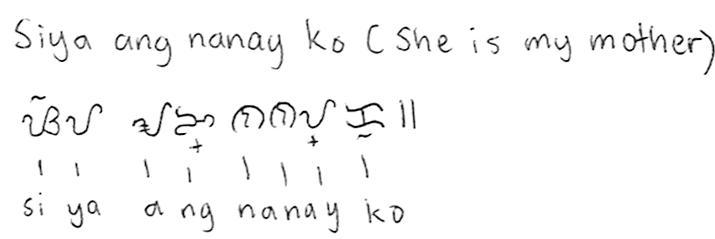 Siya ang nanay ko (She is my mother)
ᜐᜒᜌ ᜀᜅ᜔ ᜈᜈᜌ᜔ ᜃᜓ᜶
si ya a ng na na y ko